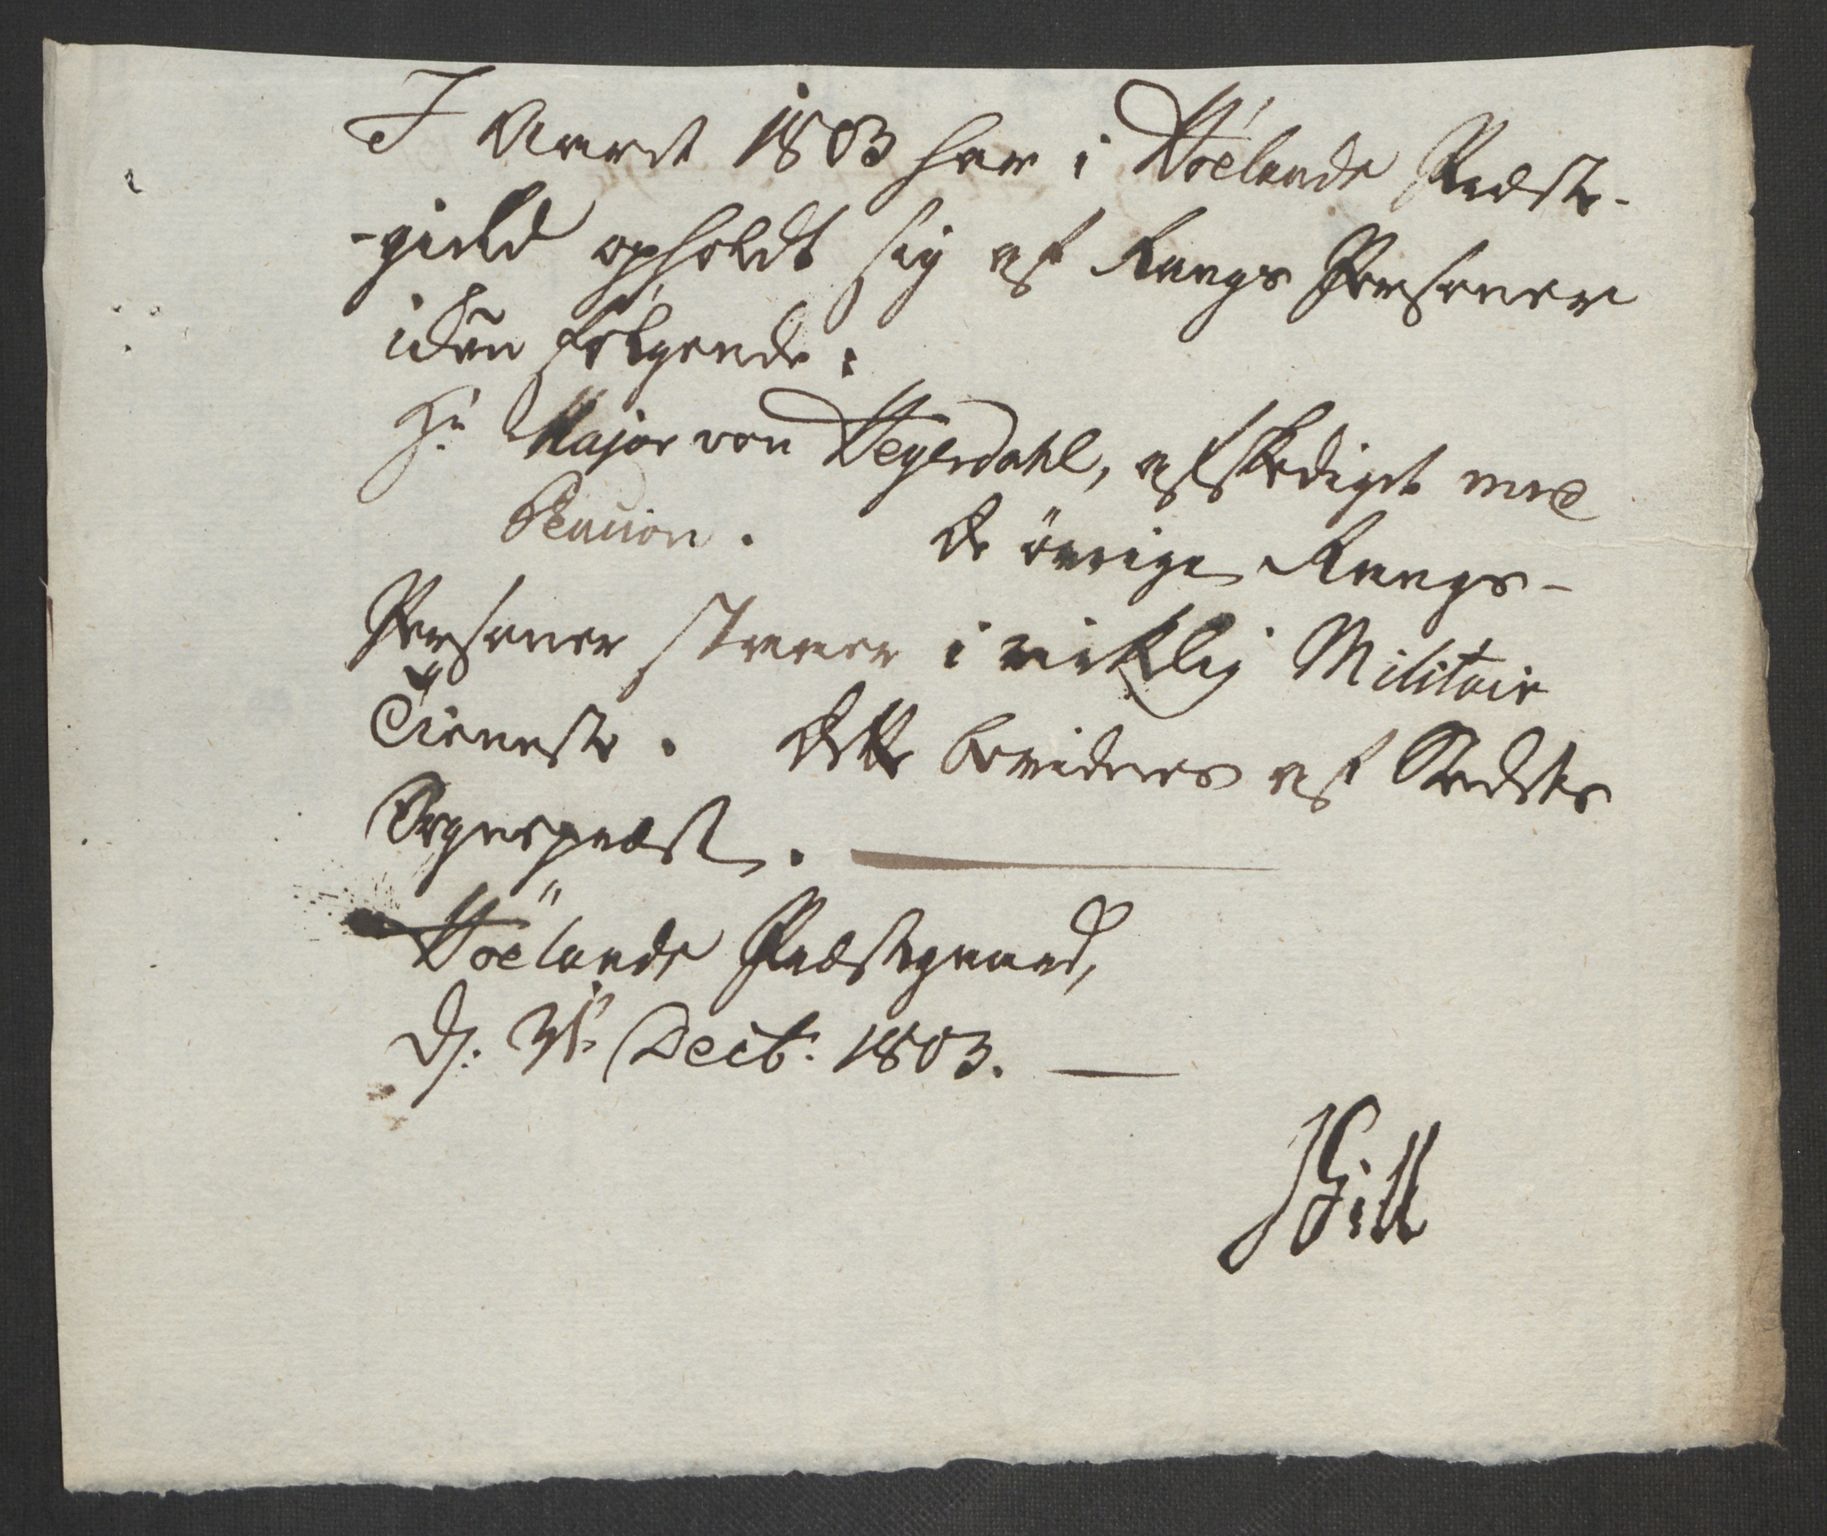 I Aaret 1803 har i Høelands Præste-
-gield opholdt sig af Rangs Personer
iden følgende:
Hr Major von Vegerdahl, afskediget med
Pension. De övrige Rangs-
Personer staaer i virklig Militair
Tieneste. Dette bevidnes af Stedets
Sognepræst.
Höelands Præstegaard,
d: 31 Decbr: 1803.
Hill